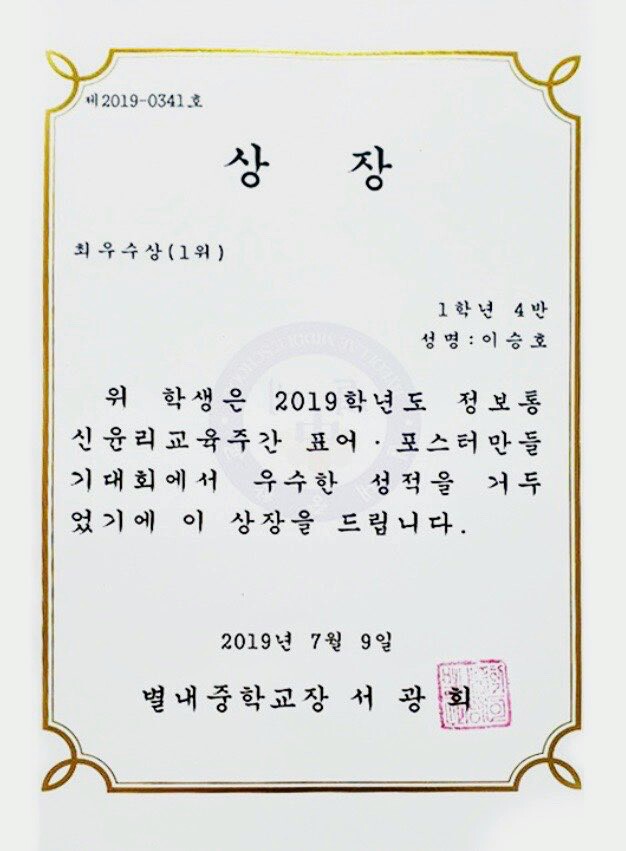 제2019-0341호
상 장
최우수상(1위)
1학년 4반
성명:이승호
위 학생은 2019학년도 정보통
신윤리교육주간 표어·포스터만들
기대회에서 우수한 성적을 거두
었기에 이 상장을 드립니다.
2019년 7월 9일
별내중학교장 서광회